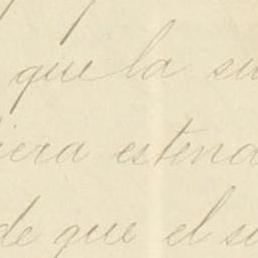 que la su
iera estend
de que el su